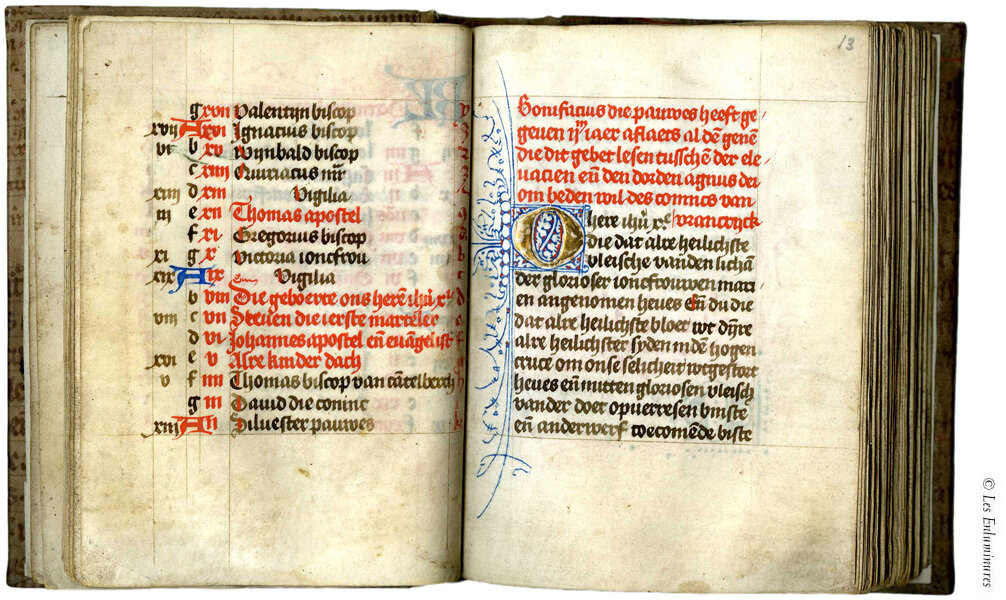 g xvii Valentijn biscop
xvii A xvi Ignatius biscop
vi b xv Wijnbald biscop
c xiiii
xiiii d xiii Vigilia
iii e xii Thomas apostel
f xi Gregorius biscop
xi g x Victoria ioncfrou
xix A ix Vigilia
b viii Die geboerte ons herē ihū xp̄
viii c vii Steuen die ierste marteler
d vi Johannes apostel eñ euāgelist
xvi e v Alre kinder dach
v f iiii Thomas biscop van cātelberch
g iii Dauid die coninc
xiii A ii Siluester pauwes
13
Bonifacius die pauwes heeft ge
geuen iaer aflaets al dē genē
die dit gebet lesen tusschē der ele
uacien eñ den dorden agnus dei
om beden wil des conincs van
O here ihū xp̄e vrancrijck
die dat alre heilichste
vleische vanden lichā
der glorioser ioncfrouwen mari
en angenomen heues eñ du die
dat alre heilichste bloet wt dijnre
alre heilichster syden inden hogen
cruce om onse selicheit wtgestort
heues eñ mitten gloriosen vleisch
vander doet opuerresen biste
eñ anderwerf toecomēde biste
© Les Enluminures